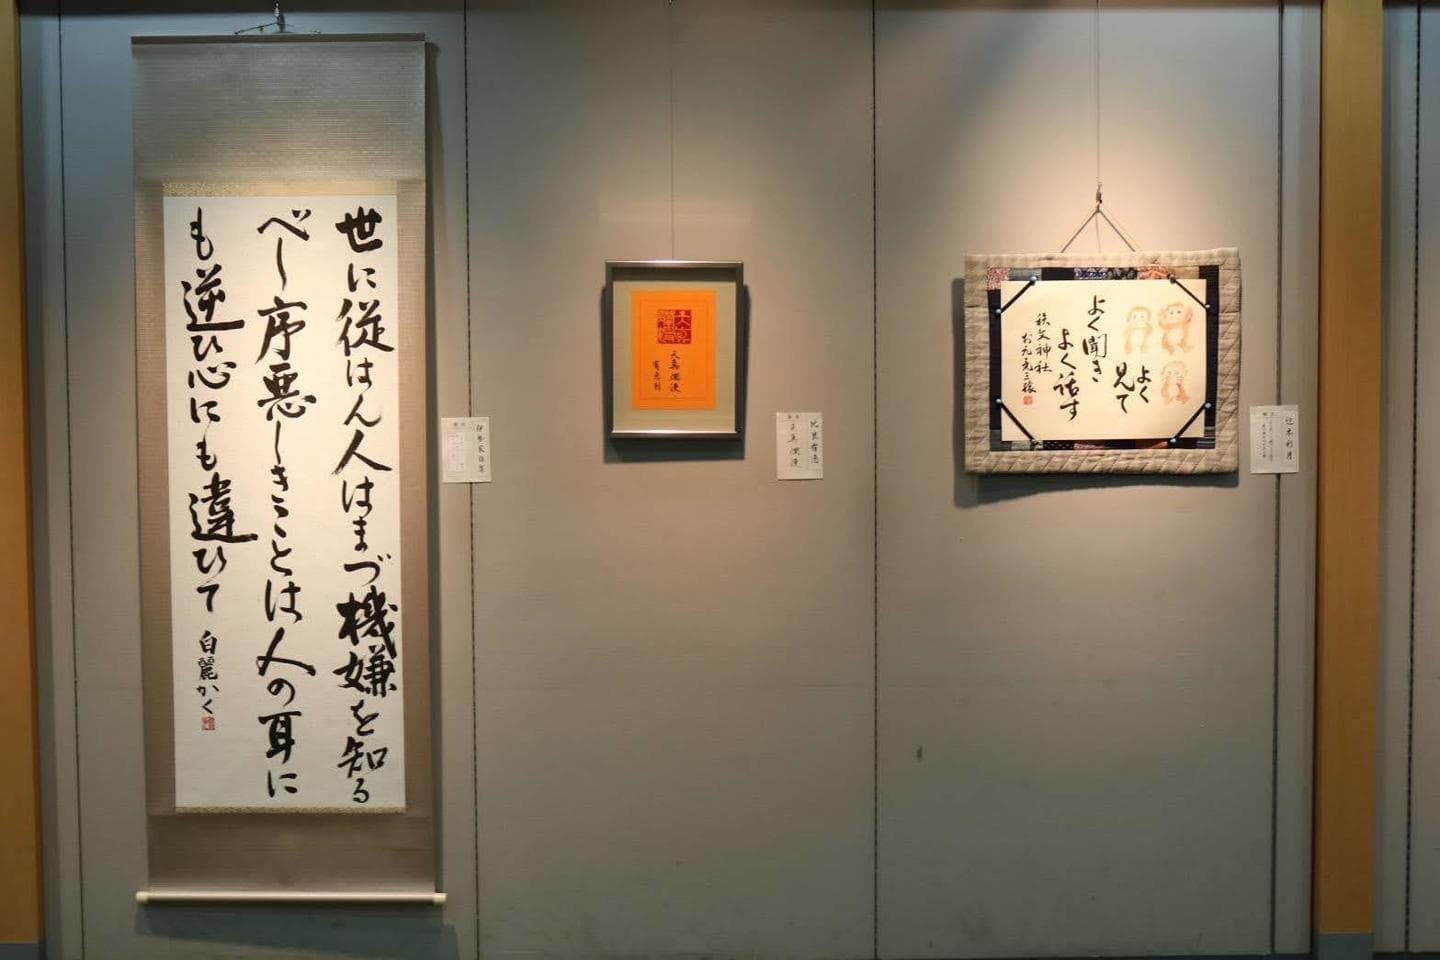 世に従はん人はまづ機嫌を知る
べし序悪しきことは人の耳に
も逆ひ心にも違ひて
白麗かく
天真爛漫
天真爛漫
よく見て
よく聞き
よく話す
秩父神社
お元気三猿